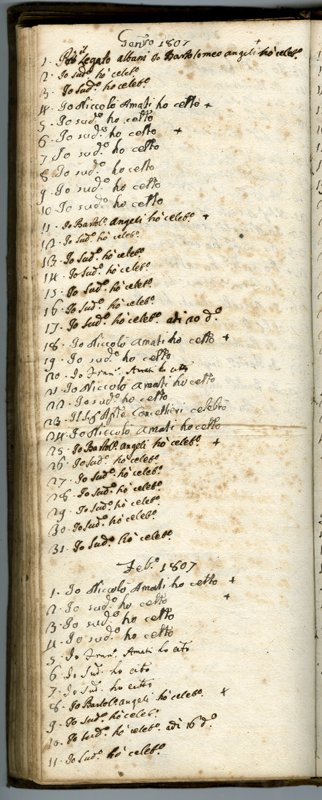 Genro 1807
1. Per Legato albani Io Bartolomeo angeli ho celebo.
2. Io sudo. ho celebo.
3. Io sudo. ho celebo.
4. Io Niccolò Amati ho celto +
5. Io sudo. ho celto
6. Io sudo. ho celto +
7. Io sudo. ho celto
8. Io sudo. ho celto
9. Io sudo. ho celto
10. Io sudo. ho celto
11. Io Bartolo. angeli ho celebo. +
12. Io sudo. ho celebo.
13. Io sudo. ho celebo.
14. Io sudo. ho celebo.
15. Io sudo. ho celebo.
16. Io sudo. ho celebo.
17. Io sudo. ho celebo. adi 20 do.
18. Io Niccolò Amati ho celto +
19. Io sudo. ho celto
20. Io Frano. Amati ho
21. Io Niccolò Amati ho celto
22. Io sudo. ho celto
23. Il Sigr celebrò
24. Io Niccolò Amati ho celto
25. Io Bartolo. angeli ho celebo. +
26. Io sudo. ho celebo.
27. Io sudo. ho celebo.
28. Io sudo. ho celebo.
29. Io sudo. ho celebo.
30. Io sudo. ho celebo.
31. Io sudo. ho celebo.
Febo. 1807
1. Io Niccolò Amati ho celto +
2. Io sudo. ho celto +
3. Io sudo. ho celto
4. Io sudo. ho celto
5. Io Frano. Amati ho
6. Io Sudo. ho
7. Io Sudo. ho
8. Io Bartolo. angeli ho celebo. +
9. Io sudo. ho celebo.
10. Io sudo. ho celebo. adi 16 do.
11. Io sudo. ho celebo.